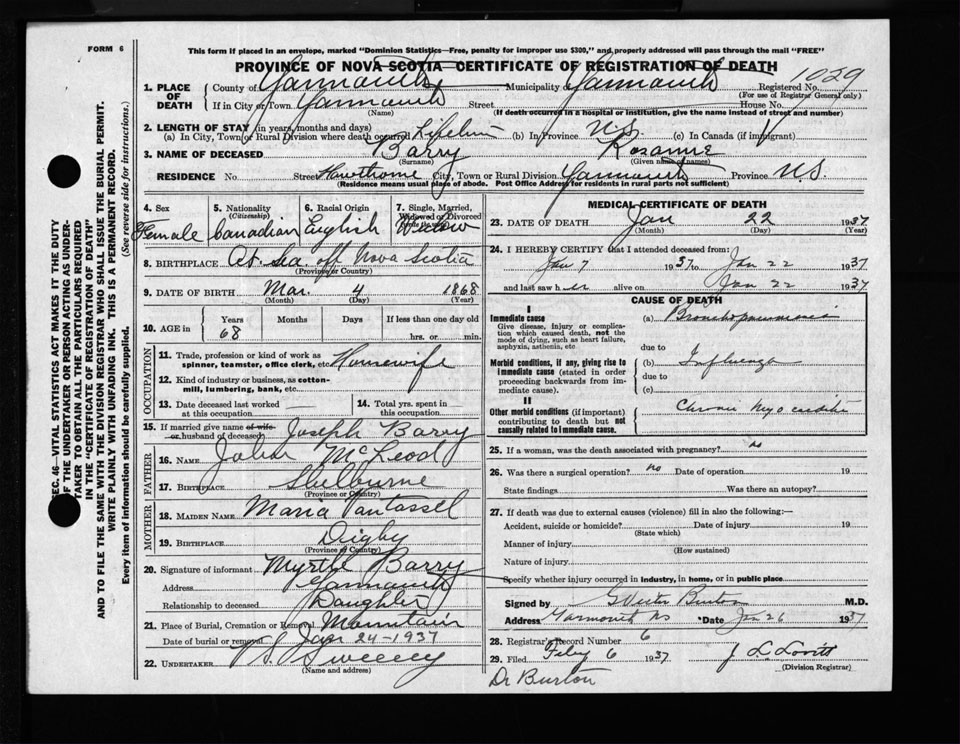 FORM 6
This form if placed in an envelope, marked "Dominion Statistics—Free, penalty for improper use $300," and properly addressed will pass through the mail "FREE"
PROVINCE OF NOVA SCOTIA—CERTIFICATE OF REGISTRATION OF DEATH
1029
SEC. 46—VITAL STATISTICS ACT MAKES IT THE DUTY
OF THE UNDERTAKER OR PERSON ACTING AS UNDER-
TAKER TO OBTAIN ALL THE PARTICULARS REQUIRED
IN THE "CERTIFICATE OF REGISTRATION OF DEATH"
AND TO FILE THE SAME WITH THE DIVISION REGISTRAR WHO SHALL ISSUE THE BURIAL PERMIT.
WRITE PLAINLY WITH UNFADING INK. THIS IS A PERMANENT RECORD.
Every item of information should be carefully supplied. (See reverse side for instructions.)
1. PLACE OF DEATH
County of Yarmouth Municipality Yarmouth Registered No.
(For use of Registrar General only)
If in City or Town Yarmouth Street House No.
(Name) (If death occurred in a hospital or institution, give the name instead of street and number)
2. LENGTH OF STAY (in years, months and days)
(a) In City, Town or Rural Division where death occurred Lifetime (b) In Province N.S. (c) In Canada (if immigrant)
3. NAME OF DECEASED Barry Rozanne
(Surname) (Given name or names)
RESIDENCE No. Street Hawthorne City, Town or Rural Division Yarmouth Province N.S.
(Residence means usual place of abode. Post Office Address for residents in rural parts not sufficient)
4. Sex Female
5. Nationality (Citizenship) Canadian
6. Racial Origin English
7. Single, Married, Widowed or Divorced Widow
8. BIRTHPLACE At Sea off Nova Scotia
(Province or Country)
9. DATE OF BIRTH Mar. 4 1868
(Month) (Day) (Year)
10. AGE in Years Months Days If less than one day old
68 hrs. or min.
OCCUPATION
11. Trade, profession or kind of work as spinner, teamster, office clerk, etc. Housewife
12. Kind of industry or business, as cotton-mill, lumbering, bank, etc.
13. Date deceased last worked at this occupation
14. Total yrs. spent in this occupation
15. If married give name of wife or husband of deceased Joseph Barry
FATHER
16. Name John McLeod
17. Birthplace Shelburne
(Province or Country)
MOTHER
18. Maiden Name Maria Vantassel
19. Birthplace Digby
(Province or Country)
20. Signature of informant Myrtle Barry
Address Yarmouth
Relationship to deceased Daughter
21. Place of Burial, Cremation or Removal Mountain
Date of burial or removal Jan 24-1937
22. Undertaker Sweeney
(Name and address)
MEDICAL CERTIFICATE OF DEATH
23. DATE OF DEATH Jan 22 1937
(Month) (Day) (Year)
24. I HEREBY CERTIFY that I attended deceased from:
Jan 7 1937 to Jan 22 1937
and last saw her alive on Jan 22 1937
CAUSE OF DEATH
I
Immediate cause
Give disease, injury or complication which caused death, not the mode of dying, such as heart failure, asphyxia, asthenia, etc
(a) Bronchopneumonia
due to
Morbid conditions, if any, giving rise to immediate cause (stated in order proceeding backwards from immediate cause).
(b) Influenza
due to
(c)
II
Other morbid conditions (if important) contributing to death but not causally related to immediate cause.
Chronic Myocarditis
25. If a woman, was the death associated with pregnancy? no
26. Was there a surgical operation? no Date of operation 19
State findings Was there an autopsy?
27. If death was due to external causes (violence) fill in also the following:—
Accident, suicide or homicide? Date of injury 19
(State which)
Manner of injury
(How sustained)
Nature of injury
Specify whether injury occurred in industry, in home, or in public place
Signed by Burton M.D.
Address Yarmouth NS Date Jan 26 1937
28. Registrar's Record Number 6
29. Filed Feby 6 1937 J L Lovitt
(Division Registrar)
Dr Burton